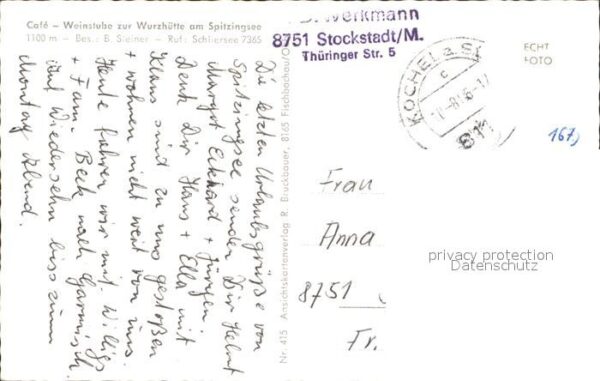 Café – Weinstube zur Wurzhütte am Spitzingsee
1100 m – Bes.: B. Steiner – Ruf: Schliersee 7365
Die letzten Urlaubsgrüße von
Spitzingsee senden Dir Helmt
Margot Eckhard + Jürgen
Denk Dir Hans + Ella mit
Klaus sind zu uns gestoßen
+ wohnen nicht weit von uns.
Heute fahren wir mit Willigs
+ Fam. Beck nach Garmisch.
Auf Wiedersehn bis zum
Montag Abend.
Nr. 415 Ansichtskartenverlag R. Bruckbauer, 8165 Fischbachau/O
Werkmann
8751 Stockstadt/M.
Thüringer Str. 5
KOCHEL a. S
c
811
ECHT
FOTO
167)
Frau
Anna
8751
Fr.
privacy protection
Datenschutz